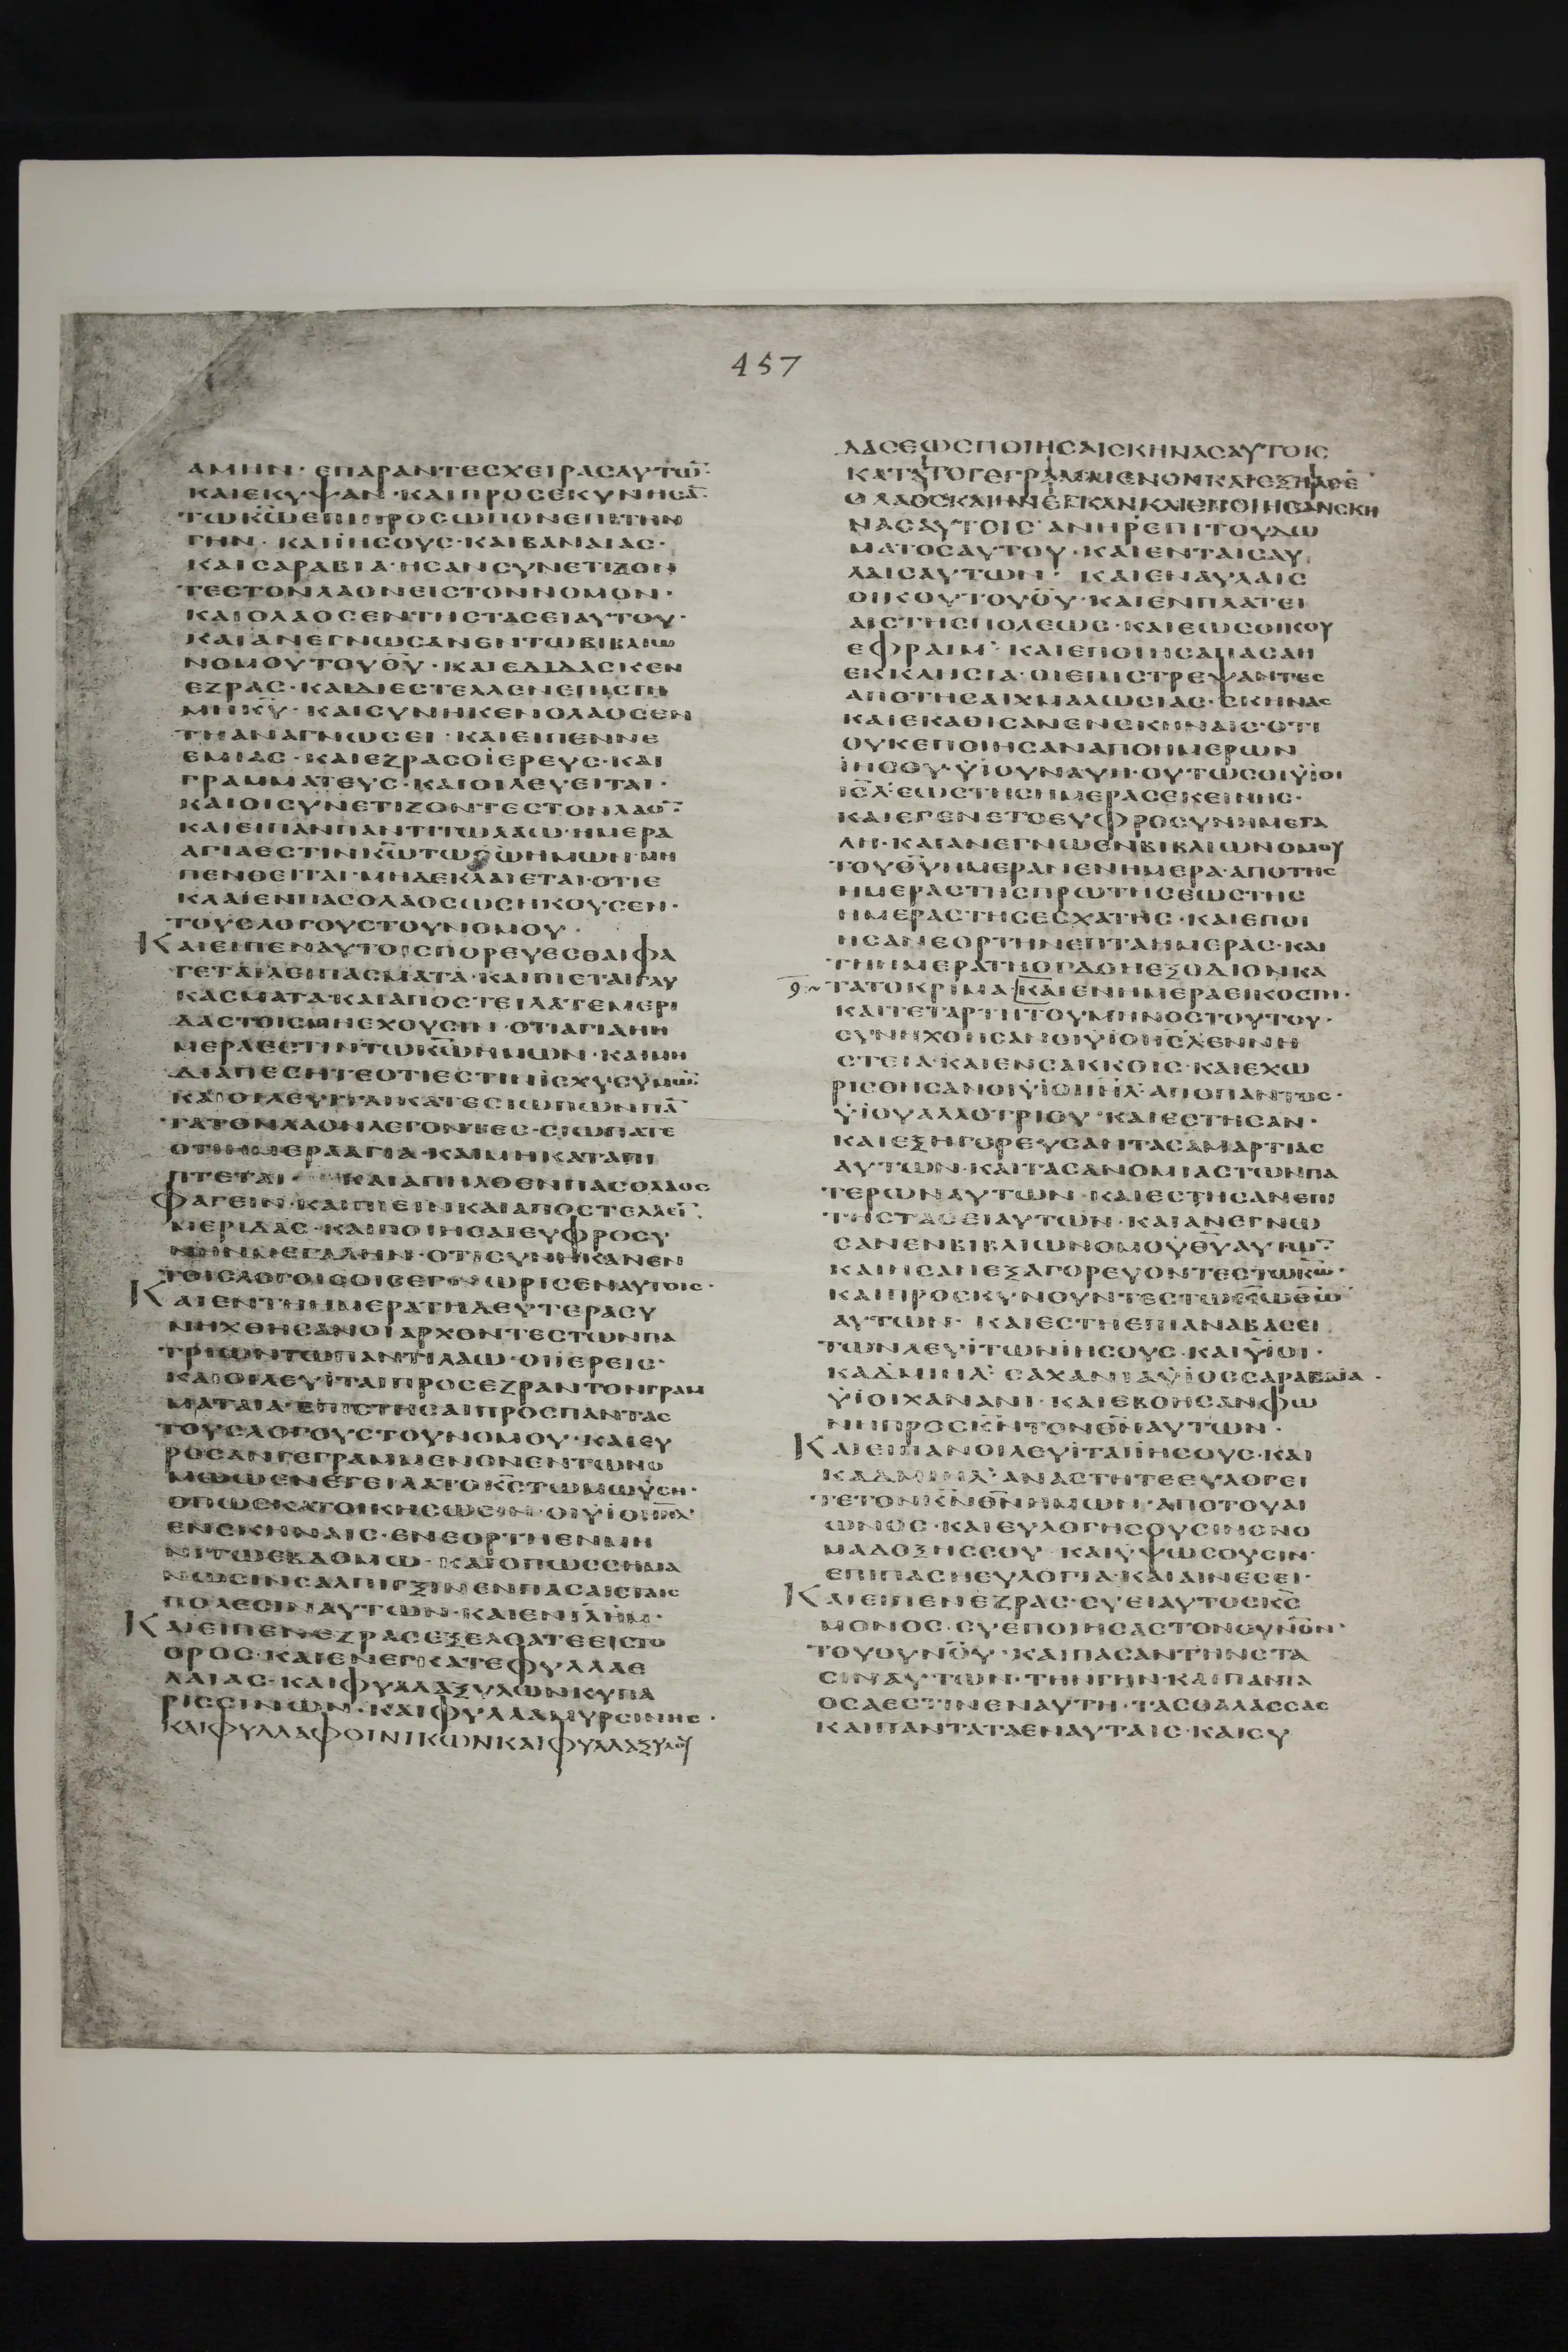 457
ΑΜΗΝ · ΕΠΑΡΑΝΤΕΣΧΕΙΡΑΣΑΥΤΩ̅
ΚΑΙΕΚΥΨΑΝ · ΚΑΙΠΡΟΣΕΚΥΝΗΣΑ̅
ΤΩΚ̅Ω̅ΕΠΙΠΡΟΣΩΠΟΝΕΠΙΤΗΝ
ΓΗΝ · ΚΑΙΪΗΣΟΥΣ · ΚΑΙΒΑΝΑΙΑΣ ·
ΚΑΙΣΑΡΑΒΙΑ · ΗΣΑΝΣΥΝΕΤΙΖΟΝ
ΤΕΣΤΟΝΛΑΟΝΕΙΣΤΟΝΝΟΜΟΝ ·
ΚΑΙΟΛΑΟΣΕΝΤΗΣΤΑΣΕΙΑΥΤΟΥ ·
ΚΑΙΑΝΕΓΝΩΣΑΝΕΝΤΩΒΙΒΛΙΩ
ΝΟΜΟΥΤΟΥΘ̅Υ̅ · ΚΑΙΕΔΙΔΑΣΚΕΝ
ΕΖΡΑΣ · ΚΑΙΔΙΕΣΤΕΛΛΕΝΕΠΙΣΤΗ
ΜΗΚ̅Υ̅ · ΚΑΙΣΥΝΗΚΕΝΟΛΑΟΣΕΝ
ΤΗΑΝΑΓΝΩΣΕΙ · ΚΑΙΕΙΠΕΝΝΕ
ΕΜΙΑΣ · ΚΑΙΕΖΡΑΣΟΪΕΡΕΥΣ · ΚΑΙ
ΓΡΑΜΜΑΤΕΥΣ · ΚΑΙΟΙΛΕΥΕΙΤΑΙ ·
ΚΑΙΟΙΣΥΝΕΤΙΖΟΝΤΕΣΤΟΝΛΑΟ̅
ΚΑΙΕΙΠΑΝΠΑΝΤΙΤΩΛΑΩ · ΗΜΕΡΑ
ΑΓΙΑΕΣΤΙΝΚ̅Ω̅ΤΩΘ̅Ω̅ΗΜΩΝ · ΜΗ
ΠΕΝΘΕΙΤΑΙ · ΜΗΔΕΚΛΑΙΕΤΑΙ · ΟΤΙΕ
ΚΛΑΙΕΝΠΑΣΟΛΑΟΣΩΣΗΚΟΥΣΕΝ ·
ΤΟΥΣΛΟΓΟΥΣΤΟΥΝΟΜΟΥ ·
ΚΑΙΕΙΠΕΝΑΥΤΟΙΣΠΟΡΕΥΕΣΘΑΙΦΑ
ΓΕΤΑΙΛΕΙΠΑΣΜΑΤΑ · ΚΑΙΠΙΕΤΑΙΓΛΥ
ΚΑΣΜΑΤΑ · ΚΑΙΑΠΟΣΤΕΙΛΑΤΕΜΕΡΙ
ΔΑΣΤΟΙΣΜΗΕΧΟΥΣΙΝ · ΟΤΙΑΓΙΑΗΗ
ΜΕΡΑΕΣΤΙΝΤΩΚ̅Ω̅ΗΜΩΝ · ΚΑΙΜΗ
ΔΙΑΠΕΣΗΤΕΟΤΙΕΣΤΙΝΪΣΧΥΣΥΜΩ̅
ΚΑΙΟΙΛΕΥΙΤΑΙΚΑΤΕΣΙΩΠΩΝΠΑ̅
ΤΑΤΟΝΛΑΟΝΛΕΓΟΝΤΕΣ · ΣΙΩΠΑΤΕ
ΟΤΙΗΜΕΡΑΑΓΙΑ · ΚΑΙΜΗΚΑΤΑΠΙ
ΠΤΕΤΑΙ · ΚΑΙΑΠΗΛΘΕΝΠΑΣΟΛΑΟΣ
ΦΑΓΕΙΝ · ΚΑΙΠΙΕΙΝ · ΚΑΙΑΠΟΣΤΕΛΛΕΙ̅
ΜΕΡΙΔΑΣ · ΚΑΙΠΟΙΗΣΑΙΕΥΦΡΟΣΥ
ΝΗΝΜΕΓΑΛΗΝ · ΟΤΙΣΥΝΗΚΑΝΕΝ
ΤΟΙΣΛΟΓΟΙΣΟΙΣΕΓΝΩΡΙΣΕΝΑΥΤΟΙΣ ·
ΚΑΙΕΝΤΗΗΜΕΡΑΤΗΔΕΥΤΕΡΑΣΥ
ΝΗΧΘΗΣΑΝΟΙΑΡΧΟΝΤΕΣΤΩΝΠΑ
ΤΡΙΩΝΤΩΠΑΝΤΙΛΑΩ · ΟΙΪΕΡΕΙΣ ·
ΚΑΙΟΙΛΕΥΪΤΑΙΠΡΟΣΕΖΡΑΝΤΟΝΓΡΑΜ
ΜΑΤΑΙΑ · ΕΠΙΣΤΗΣΑΙΠΡΟΣΠΑΝΤΑΣ
ΤΟΥΣΛΟΓΟΥΣΤΟΥΝΟΜΟΥ · ΚΑΙΕΥ
ΡΟΣΑΝΓΕΓΡΑΜΜΕΝΟΝΕΝΤΩΝΟ
ΜΩΩΕΝΕΤΕΙΛΑΤΟΚ̅Σ̅ΤΩΜΩΥΣΗ ·
ΟΠΩΣΚΑΤΟΙΚΗΣΩΣΙΝ · ΟΙΥΪΟΙΙ̅Σ̅Λ̅
ΕΝΣΚΗΝΑΙΣ · ΕΝΕΟΡΤΗΕΝΜΗ
ΝΙΤΩΕΒΔΟΜΩ · ΚΑΙΟΠΩΣΣΗΜΑ
ΝΩΣΙΝΣΑΛΠΙΓΞΙΝΕΝΠΑΣΑΙΣΤΑΙΣ
ΠΟΛΕΣΙΝΑΥΤΩΝ · ΚΑΙΕΝΙ̅Λ̅Η̅Μ̅ ·
ΚΑΙΕΙΠΕΝΕΖΡΑΣΕΞΕΛΘΑΤΕΕΙΣΤΟ
ΟΡΟΣ · ΚΑΙΕΝΕΓΚΑΤΕΦΥΛΛΑΕ
ΛΑΙΑΣ · ΚΑΙΦΥΛΛΑΞΥΛΩΝΚΥΠΑ
ΡΙΣΣΙΝΩΝ · ΚΑΙΦΥΛΛΑΜΥΡΣΙΝΗΣ ·
ΚΑΙΦΥΛΛΑΦΟΙΝΙΚΩΝΚΑΙΦΥΛΛΑΞΥΛΟΥ
ΔΑΣΕΩΣΠΟΙΗΣΑΙΣΚΗΝΑΣΑΥΤΟΙΣ
ΚΑΤΑΤΟΓΕΓΡΑΜΜΕΝΟΝΚΑΙΕΞΗΛΘΕ̅
ΟΛΑΟΣΚΑΙΗΝΕΓΚΑΝΚΑΙΕΠΟΙΗΣΑΝΣΚΗ
ΝΑΣΑΥΤΟΙΣ · ΑΝΗΡΕΠΙΤΟΥΔΩ
ΜΑΤΟΣΑΥΤΟΥ · ΚΑΙΕΝΤΑΙΣΑΥ
ΛΑΙΣΑΥΤΩΝ · ΚΑΙΕΝΑΥΛΑΙΣ
ΟΙΚΟΥΤΟΥΘ̅Υ̅ · ΚΑΙΕΝΠΛΑΤΕΙ
ΑΙΣΤΗΣΠΟΛΕΩΣ · ΚΑΙΕΩΣΟΙΚΟΥ
ΕΦΡΑΙΜ · ΚΑΙΕΠΟΙΗΣΑΠΑΣΑΗ
ΕΚΚΛΗΣΙΑ · ΟΙΕΠΙΣΤΡΕΨΑΝΤΕΣ
ΑΠΟΤΗΣΑΙΧΜΑΛΩΣΙΑΣ · ΣΚΗΝΑΣ
ΚΑΙΕΚΑΘΙΣΑΝΕΝΣΚΗΝΑΙΣ · ΟΤΙ
ΟΥΚΕΠΟΙΗΣΑΝΑΠΟΗΜΕΡΩΝ
ΪΗΣΟΥ · ΥΪΟΥΝΑΥΗ · ΟΥΤΩΣΟΙΥΪΟΙ
Ι̅Σ̅Λ̅ · ΕΩΣΤΗΣΗΜΕΡΑΣΕΚΕΙΝΗΣ ·
ΚΑΙΕΓΕΝΕΤΟΕΥΦΡΟΣΥΝΗΜΕΓΑ
ΛΗ · ΚΑΙΑΝΕΓΝΩΕΝΒΙΒΛΙΩΝΟΜΟΥ
ΤΟΥΘ̅Υ̅ΗΜΕΡΑΝΕΝΗΜΕΡΑ · ΑΠΟΤΗΣ
ΗΜΕΡΑΣΤΗΣΠΡΩΤΗΣΕΩΣΤΗΣ
ΗΜΕΡΑΣΤΗΣΕΣΧΑΤΗΣ · ΚΑΙΕΠΟΙ
ΗΣΑΝΕΟΡΤΗΝΕΠΤΑΗΜΕΡΑΣ · ΚΑΙ
ΤΗΗΜΕΡΑΤΗΟΓΔΟΗΕΞΟΔΙΟΝΚΑ
ΤΑΤΟΚΡΙΜΑ · ΚΑΙΕΝΗΜΕΡΑΕΙΚΟΣΤΗ ·
ΚΑΙΤΕΤΑΡΤΗΤΟΥΜΗΝΟΣΤΟΥΤΟΥ ·
ΣΥΝΗΧΘΗΣΑΝΟΙΥΪΟΙΙ̅Σ̅Λ̅ΕΝΝΗ
ΣΤΕΙΑ · ΚΑΙΕΝΣΑΚΚΟΙΣ · ΚΑΙΕΧΩ
ΡΙΣΘΗΣΑΝΟΙΥΪΟΙΙ̅Η̅Λ̅ · ΑΠΟΠΑΝΤΟΣ ·
ΥΪΟΥΑΛΛΟΤΡΙΟΥ · ΚΑΙΕΣΤΗΣΑΝ ·
ΚΑΙΕΞΗΓΟΡΕΥΣΑΝΤΑΣΑΜΑΡΤΙΑΣ
ΑΥΤΩΝ · ΚΑΙΤΑΣΑΝΟΜΙΑΣΤΩΝΠΑ
ΤΕΡΩΝΑΥΤΩΝ · ΚΑΙΕΣΤΗΣΑΝΕΠΙ
ΤΗΣΤΑΣΕΙΑΥΤΩΝ · ΚΑΙΑΝΕΓΝΩ
ΣΑΝΕΝΒΙΒΛΙΩΝΟΜΟΥΘ̅Υ̅ΑΥΤΩ̅
ΚΑΙΗΣΑΝΕΞΑΓΟΡΕΥΟΝΤΕΣΤΩΚ̅Ω̅ ·
ΚΑΙΠΡΟΣΚΥΝΟΥΝΤΕΣΤΩΚ̅Ω̅Θ̅Ω̅
ΑΥΤΩΝ · ΚΑΙΕΣΤΗΕΠΙΑΝΑΒΑΣΕΙ
ΤΩΝΛΕΥΪΤΩΝΪΗΣΟΥΣ · ΚΑΙΥΪΟΙ ·
ΚΑΔΜΙΗΛ · ΣΑΧΑΝΙΑΥΪΟΣΣΑΡΑΒΑΪΑ ·
ΥΪΟΙΧΑΝΑΝΙ · ΚΑΙΕΒΟΗΣΑΝΦΩ
ΝΗΠΡΟΣΚ̅Ν̅ΤΟΝΘ̅Ν̅ΑΥΤΩΝ ·
ΚΑΙΕΙΠΑΝΟΙΛΕΥΪΤΑΙΪΗΣΟΥΣ · ΚΑΙ
ΚΑΔΜΙΗΛ · ΑΝΑΣΤΗΤΕΕΥΛΟΓΕΙ
ΤΕΤΟΝΚ̅Ν̅Θ̅Ν̅ΗΜΩΝ · ΑΠΟΤΟΥΑΙ
ΩΝΟΣ · ΚΑΙΕΥΛΟΓΗΣΟΥΣΙΝΟΝΟ
ΜΑΔΟΞΗΣΣΟΥ · ΚΑΙΥΨΩΣΟΥΣΙΝ ·
ΕΠΙΠΑΣΗΕΥΛΟΓΙΑ · ΚΑΙΑΙΝΕΣΕΙ ·
ΚΑΙΕΙΠΕΝΕΖΡΑΣ · ΣΥΕΙΑΥΤΟΣΚ̅Σ̅
ΜΟΝΟΣ · ΣΥΕΠΟΙΗΣΑΣΤΟΝΟΥΝΟΝ ·
ΤΟΥΟΥΝΟΥ · ΚΑΙΠΑΣΑΝΤΗΝΣΤΑ
ΣΙΝΑΥΤΩΝ · ΤΗΝΓΗΝ · ΚΑΙΠΑΝΤΑ
ΟΣΑΕΣΤΙΝΕΝΑΥΤΗ · ΤΑΣΘΑΛΑΣΣΑΣ
ΚΑΙΠΑΝΤΑΤΑΕΝΑΥΤΑΙΣ · ΚΑΙΣΥ